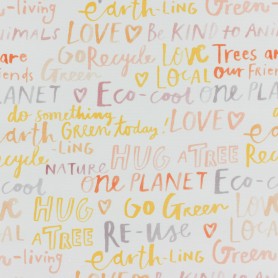 -living earth-LiNG Green-
ANIMALS LOVE♡ Be KIND to Anim
are GO Recycle LOVE♡ Trees are
friends Green♡ LOCAL our Frien
PLANET ♡ Eco-cool ONE PLAN
do something LOVE♡
earth Green today! ear
-LING HUG Recycle
Recycle NATURE A TREE Gree
ONE PLANET Eco-c
HUG ♡ GO Green LOVE
A TREE RE-use ♡ LO
-living earth-LiNG Green